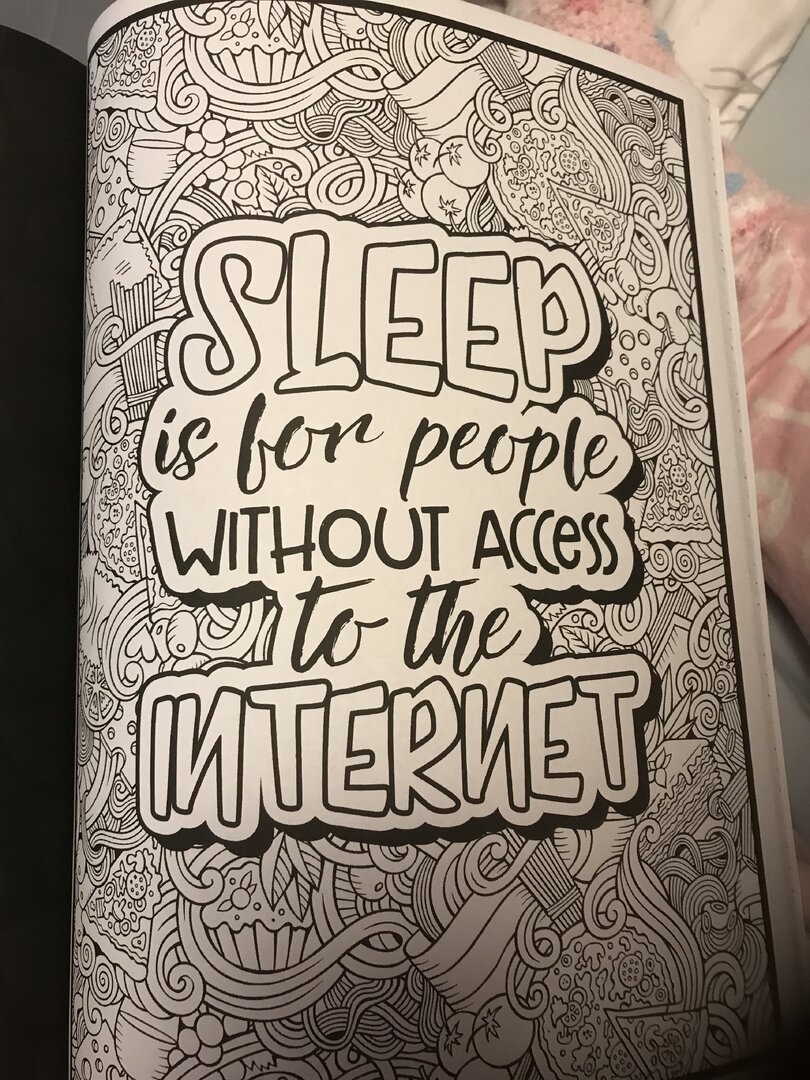 SLEEP
is for people
WITHOUT ACCESS
to the
INTERNET